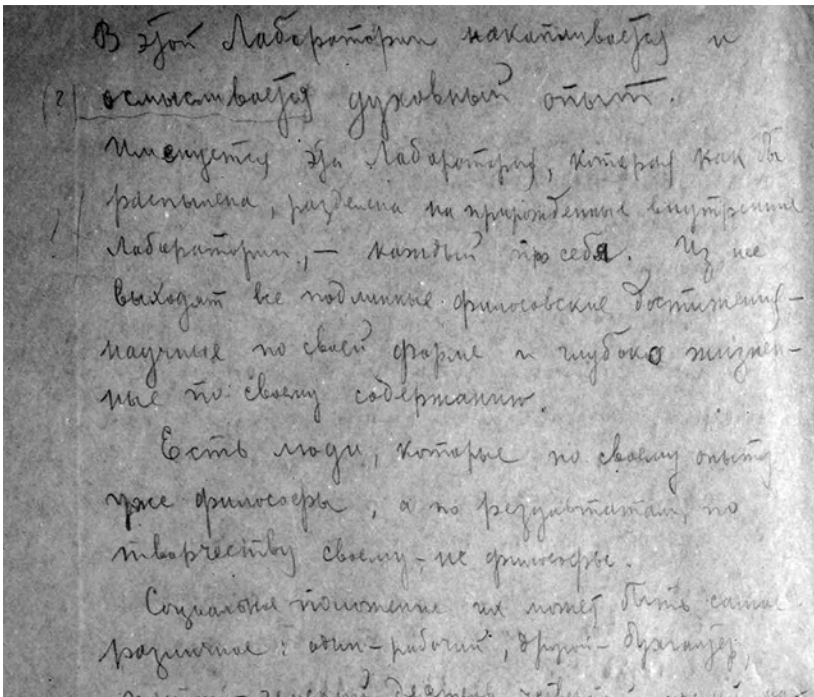 В этой Лаборатории накапливается и
(?) осмысливается духовный опыт.
Именуется эта Лаборатория, которая как бы
распылена, разделена на прирожденные внутренние
Лаборатории, — каждый про себя. Из нее
выходят все подлинные философские достижения —
научные по своей форме и глубоко жизнен-
ные по своему содержанию.
Есть люди, которые по своему опыту
уже философы, а по результатам, по
творчеству своему – не философы.
Социальное положение их может быть самое
различное: один – рабочий, другой – бухгалтер,